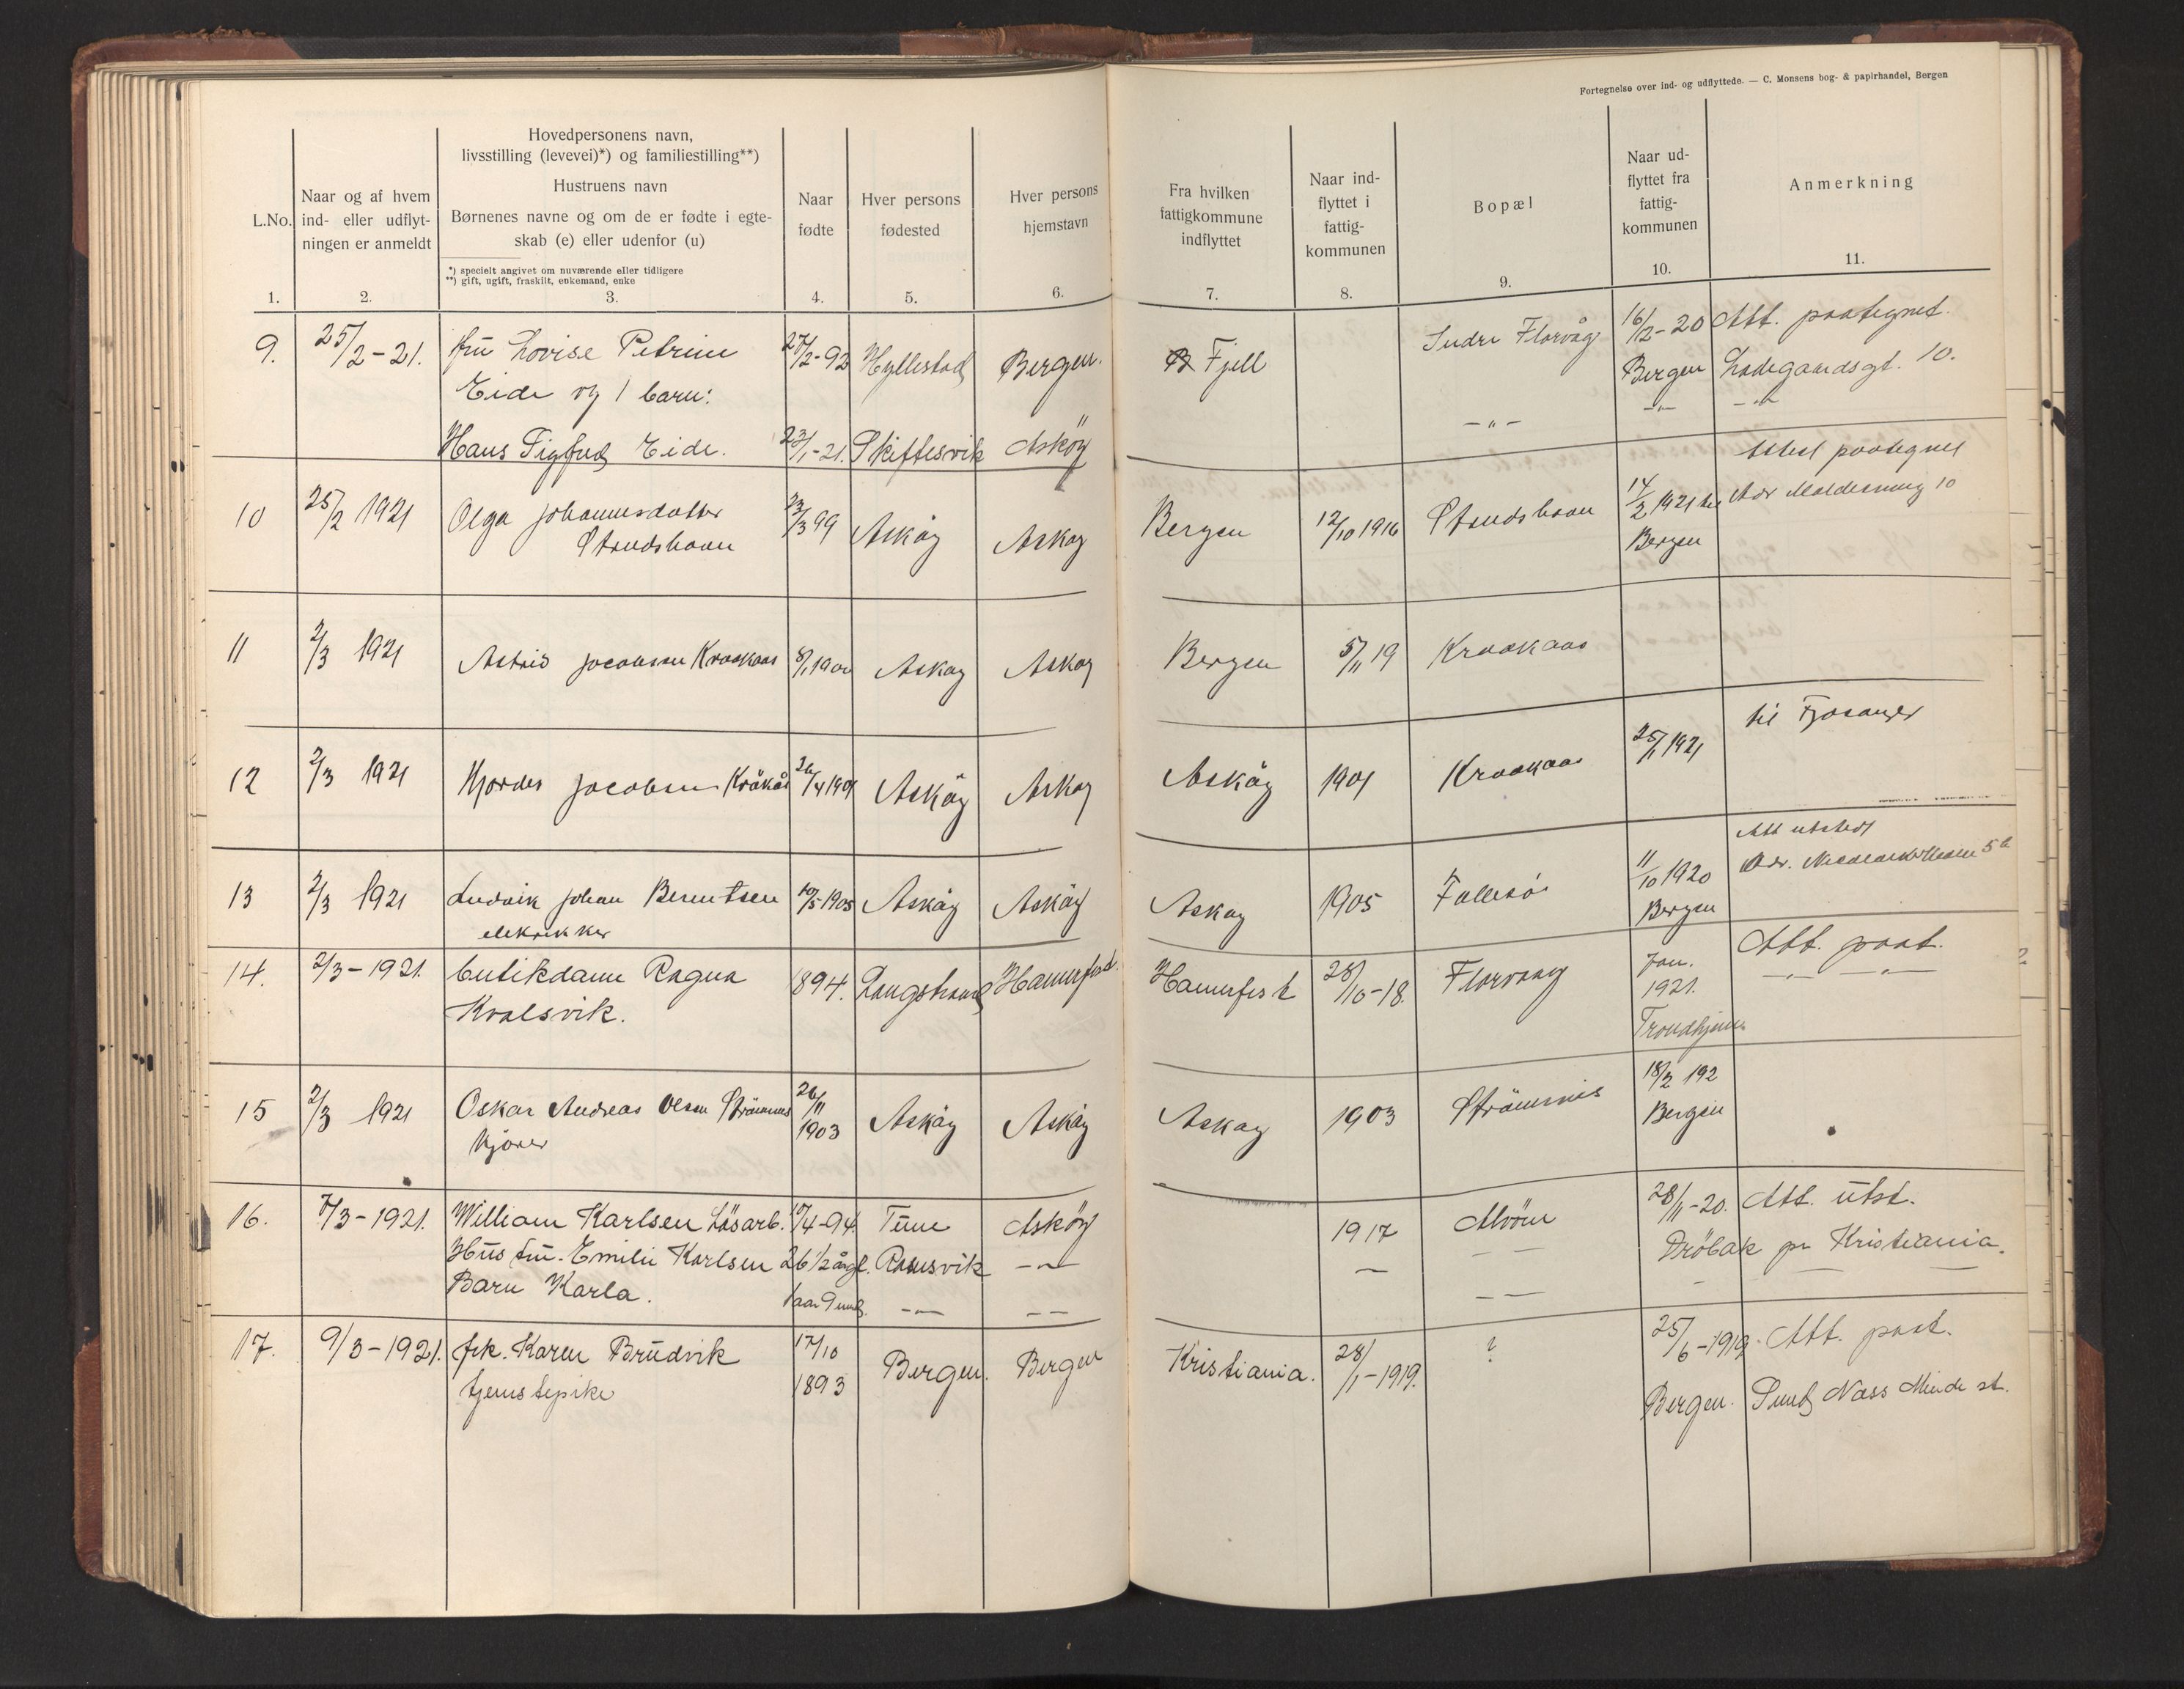 Fortegnelse over ind- og udflyttede. — C. Monsens bog- & papirhandel, Bergen
L.No.
1.
Naar og af hvem
ind- eller udflyt-
ningen er anmeldt
2.
Hovedpersonens navn,
livsstilling (levevei)*) og familiestilling**)
Hustruens navn
Børnenes navne og om de er fødte i egte-
skab (e) eller udenfor (u)
*) specielt angivet om nuværende eller tidligere
**) gift, ugift, fraskilt, enkemand, enke
3.
Naar
fødte
4.
Hver persons
fødested
5.
Hver persons
hjemstavn
6.
Fra hvilken
fattigkommune
indflyttet
7.
Naar ind-
flyttet i
fattig-
kommunen
8.
Bopæl
9.
Naar ud-
flyttet fra
fattig-
kommunen
10.
Anmerkning
11.
9. 25/2-21. fru Lovise Petrine 27/2-92 Hyllestad Bergen. Fjell Indre Florvåg 16/2-20 Att. paategnet.
Eide og 1 barn: Bergen Ladegaardsgt. 10.
Hans Sigfred Eide. 23/1-21. Skiftesvik Askøy -"- -"- -"-
10 25/2 1921 Olga Johannesdatter 23/3 99 Askøy Askøy Bergen 12/10 1916 Strudshavn 14/2 1921 til Attest paategnet
Strudshavn Bergen Adr 10
11 2/3 1921 Astrid Jacobsen Kraakaas 8/1 1900 Askøy Askøy Bergen 5/11 19 Kraakaas
12 2/3 1921 Hjordes Jacobsen Kråkås 26/4 1901 Askøy Askøy Askøy 1901 Kraakaas 25/1 1921 til Fjøsanger
13 2/3 1921 Ludvik Johan Berentsen 10/5 1905 Askøy Askøy Askøy 1905 Follesø 11/10 1920 Att utstedt
elektrikker Bergen Adr. 5 a
14. 2/3-1921. butikdame Ragna 1894. Langstrand Hamerfest. Hamerfest 28/10-18. Florvaag Jan. Att. paat.
Kvalsvik. 1921. -"- -"-
Trondhjem
15 2/3 1921 Oskar Andreas Olsen Strømsnes 26/11 Askøy Askøy Askøy 1903 Strømsnes 18/2 192
kjører 1903 Bergen
16. 7/3-1921. William Karlsen Løsarb. 17/4-94. Tune Askøy 1917 Alvøen 28/11-20. Att. utst.
Hustru. Emilie Karlsen 26 1/2 årgl. Ramsvik -"- — — — Drøbak pr Kristiania.
Barn Karla. 1 aar 9 mnd. -"- — — — —
17. 9/3-1921. frk. Karen Brudvik 17/10 Bergen. Bergen Kristiania. 28/1-1919. ? 25/6-1919. Att. paat.
tjenstepike 1893 Bergen. Sund Næss Minde st.